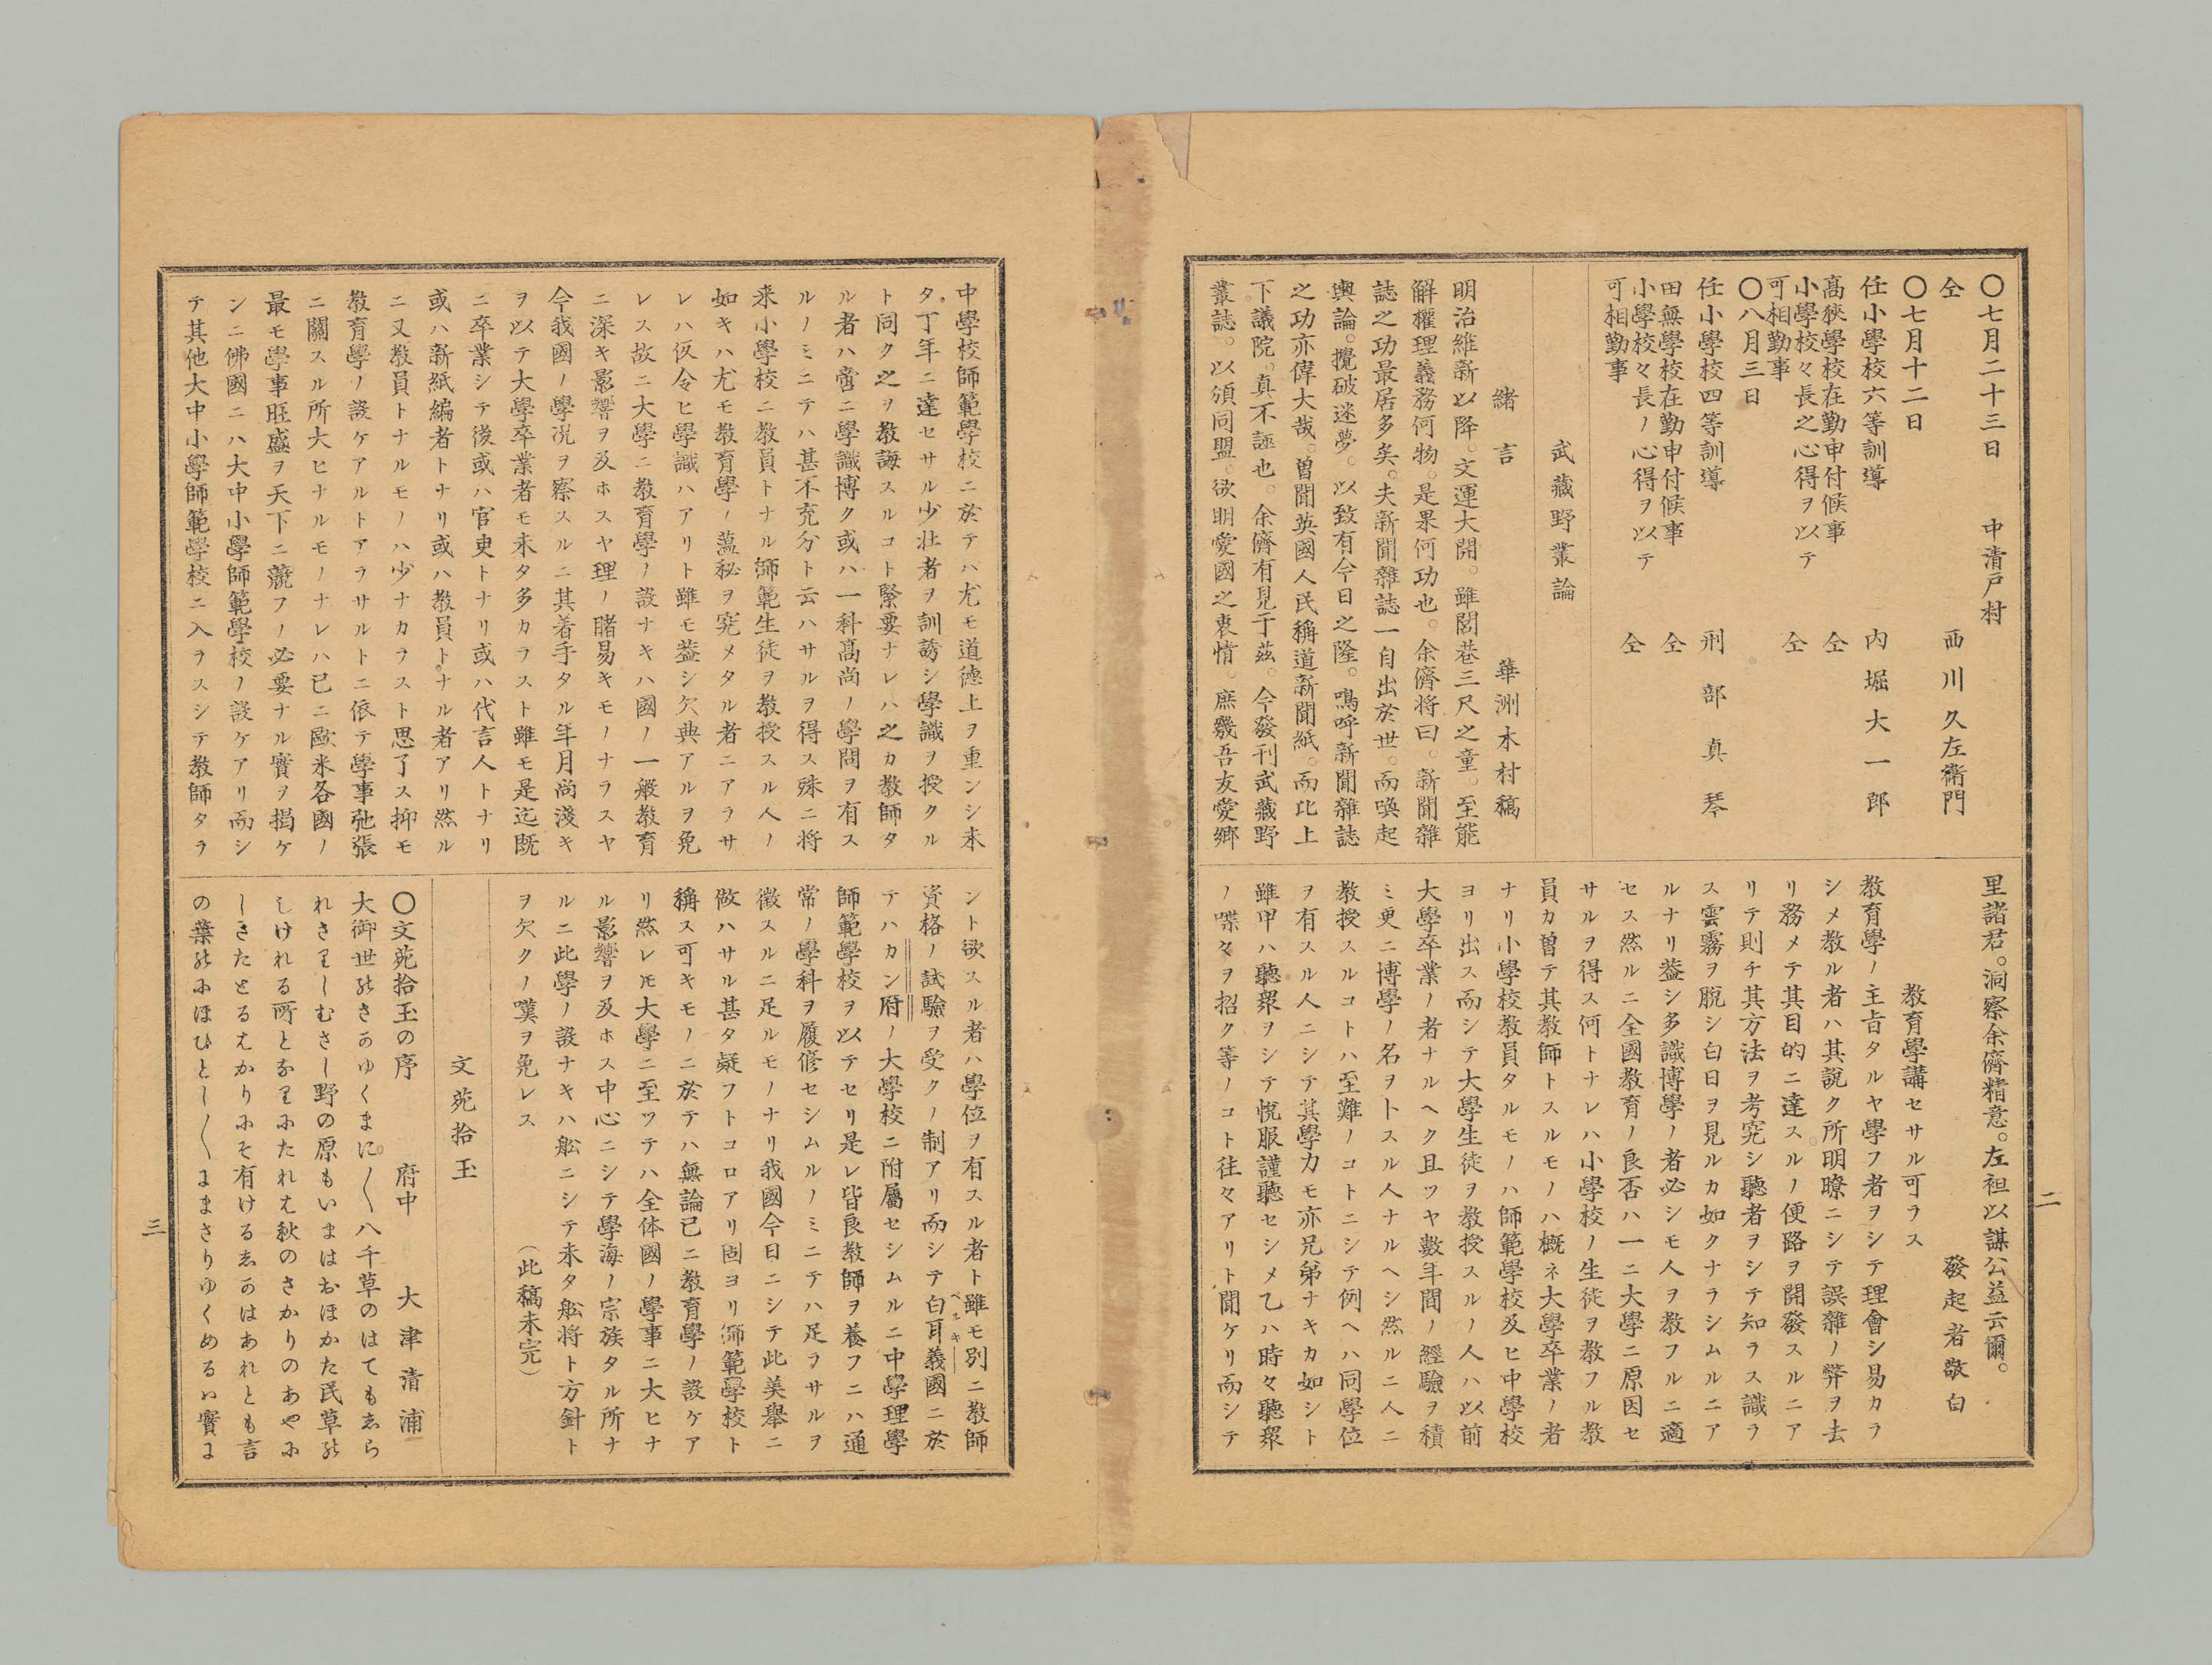 〇七月二十三日　中清戸村
仝　西川久左衛門
〇七月十二日
任小學校六等訓導　内堀大一郎
髙狹學校在勤申付候事　仝
小學校々長之心得ヲ以テ
可相勤事　仝
〇八月三日
任小學校四等訓導　刑部真琴
田無學校在勤申付候事　仝
小學校々長ノ心得ヲ以テ
可相勤事　仝
武藏野叢論
緒言　華洲木村稿
明治維新以降。文運大開。雖閭巷三尺之童。至能
解權理義務何物。是果何功也。余儕将曰。新聞雜
誌之功最居多矣。夫新聞雜誌一自出於世。而喚起
輿論。攪破迷夢。以致有今日之隆。嗚呼新聞雜誌
之功亦偉大哉。曽聞英國人民稱道新聞紙。而比上
下議院。真不誣也。余儕有見于茲。今發刊武藏野
叢誌。以須同盟。欲明愛國之衷情。庶幾吾友愛郷
里諸君。洞察余儕精意。左袒以謀公益云爾。
發起者敬白
教育學講セサル可ラス
教育學ノ主旨タルヤ學フ者ヲシテ理會シ易カラ
シメ教ル者ハ其說ク所明瞭ニシテ誤雜ノ弊ヲ去
リ務メテ其目的ニ達スルノ便路ヲ開發スルニア
リテ則チ其方法ヲ考究シ聽者ヲシテ知ラス識ラ
ス雲霧ヲ脫シ白日ヲ見ルカ如クナラシムルニア
ルナリ蓋シ多識博學ノ者必シモ人ヲ教フルニ適
セス然ルニ全國教育ノ良否ハ一ニ大學ニ原因セ
サルヲ得ス何トナレハ小學校ノ生徒ヲ教フル教
員カ曽テ其教師トスルモノハ概ネ大學卒業ノ者
ナリ小學校教員タルモノハ師範學校及ヒ中學校
ヨリ出ス而シテ大學生徒ヲ教授スルノ人ハ以前
大學卒業ノ者ナルヘク且ツヤ數年間ノ經驗ヲ積
ミ更ニ博學ノ名ヲトスル人ナルヘシ然ルニ人ニ
教授スルコトハ至難ノコトニシテ例ヘハ同學位
ヲ有スル人ニシテ其學力モ亦兄弟ナキカ如シト
雖甲ハ聽衆ヲシテ悅服謹聽セシメ乙ハ時々聽衆
ノ喋々ヲ招ク等ノコト往々アリト聞ケリ而シテ
二
中學校師範學校ニ於テハ尤モ道德上ヲ重ンシ未
タ丁年ニ達セサル少壮者ヲ訓誘シ學識ヲ授クル
ト同ク之ヲ教誨スルコト緊要ナレハ之カ教師タ
ル者ハ啻ニ學識博ク或ハ一科髙尚ノ學問ヲ有ス
ルノミニテハ甚不充分ト云ハサルヲ得ス殊ニ将
来小學校ニ教員トナル師範生徒ヲ教授スル人ノ
如キハ尤モ教育學ノ薀秘ヲ究メタル者ニアラサ
レハ仮令ヒ學識ハアリト雖モ蓋シ欠典アルヲ免
レス故ニ大學ニ教育學ノ設ナキハ國ノ一般教育
ニ深キ影響ヲ及ホスヤ理ノ睹易キモノナラスヤ
今我國ノ學況ヲ察スルニ其着手タル年月尚淺キ
ヲ以テ大學卒業者モ未タ多カラスト雖モ是迄既
ニ卒業シテ後或ハ官吏トナリ或ハ代言人トナリ
或ハ新紙編者トナリ或ハ教員トナル者アリ然ル
ニ又教員トナルモノハ少ナカラスト思了ス抑モ
教育學ノ設ケアルトアラサルトニ依テ學事弛張
ニ關スル所大ヒナルモノナレハ已ニ歐米各國ノ
最モ學事旺盛ヲ天下ニ競フノ必要ナル實ヲ揭ケ
ンニ佛國ニハ大中小學師範學校ノ設ケアリ而シ
テ其他大中小學師範學校ニ入ヲスシテ教師タラ
ント欲スル者ハ學位ヲ有スル者ト雖モ別ニ教師
資格ノ試驗ヲ受クノ制アリ而シテ白耳義國ニ於
テハカン府ノ大學校ニ附屬セシムルニ中學理學
師範學校ヲ以テセリ是レ皆良教師ヲ養フニハ通
常ノ學科ヲ履修セシムルノミニテハ足ラサルヲ
徵スルニ足ルモノナリ我國今日ニシテ此美舉ニ
做ハサル甚タ疑フトコロアリ固ヨリ師範學校ト
稱ス可キモノニ於テハ無論已ニ教育學ノ設ケア
リ然レ𪜈大學ニ至ツテハ全体國ノ學事ニ大ヒナ
ル影響ヲ及ホス中心ニシテ學海ノ宗族タル所ナ
ルニ此學ノ設ナキハ舩ニシテ未タ舩将ト方針ト
ヲ欠クノ嘆ヲ免レス　（此稿未完）
文苑拾玉
〇文苑拾玉の序　府中　大津清浦
大御世のさかゆくまに〱八千草のはてもしら
れさりしむさし野の原もいまはおほかた民草の
しけれる所となりにたれは秋のさかりのあやに
しきたとるはかりにそ有けるしかはあれとも言
の葉のにほひとし〱にまさりゆくめるハ實に
三